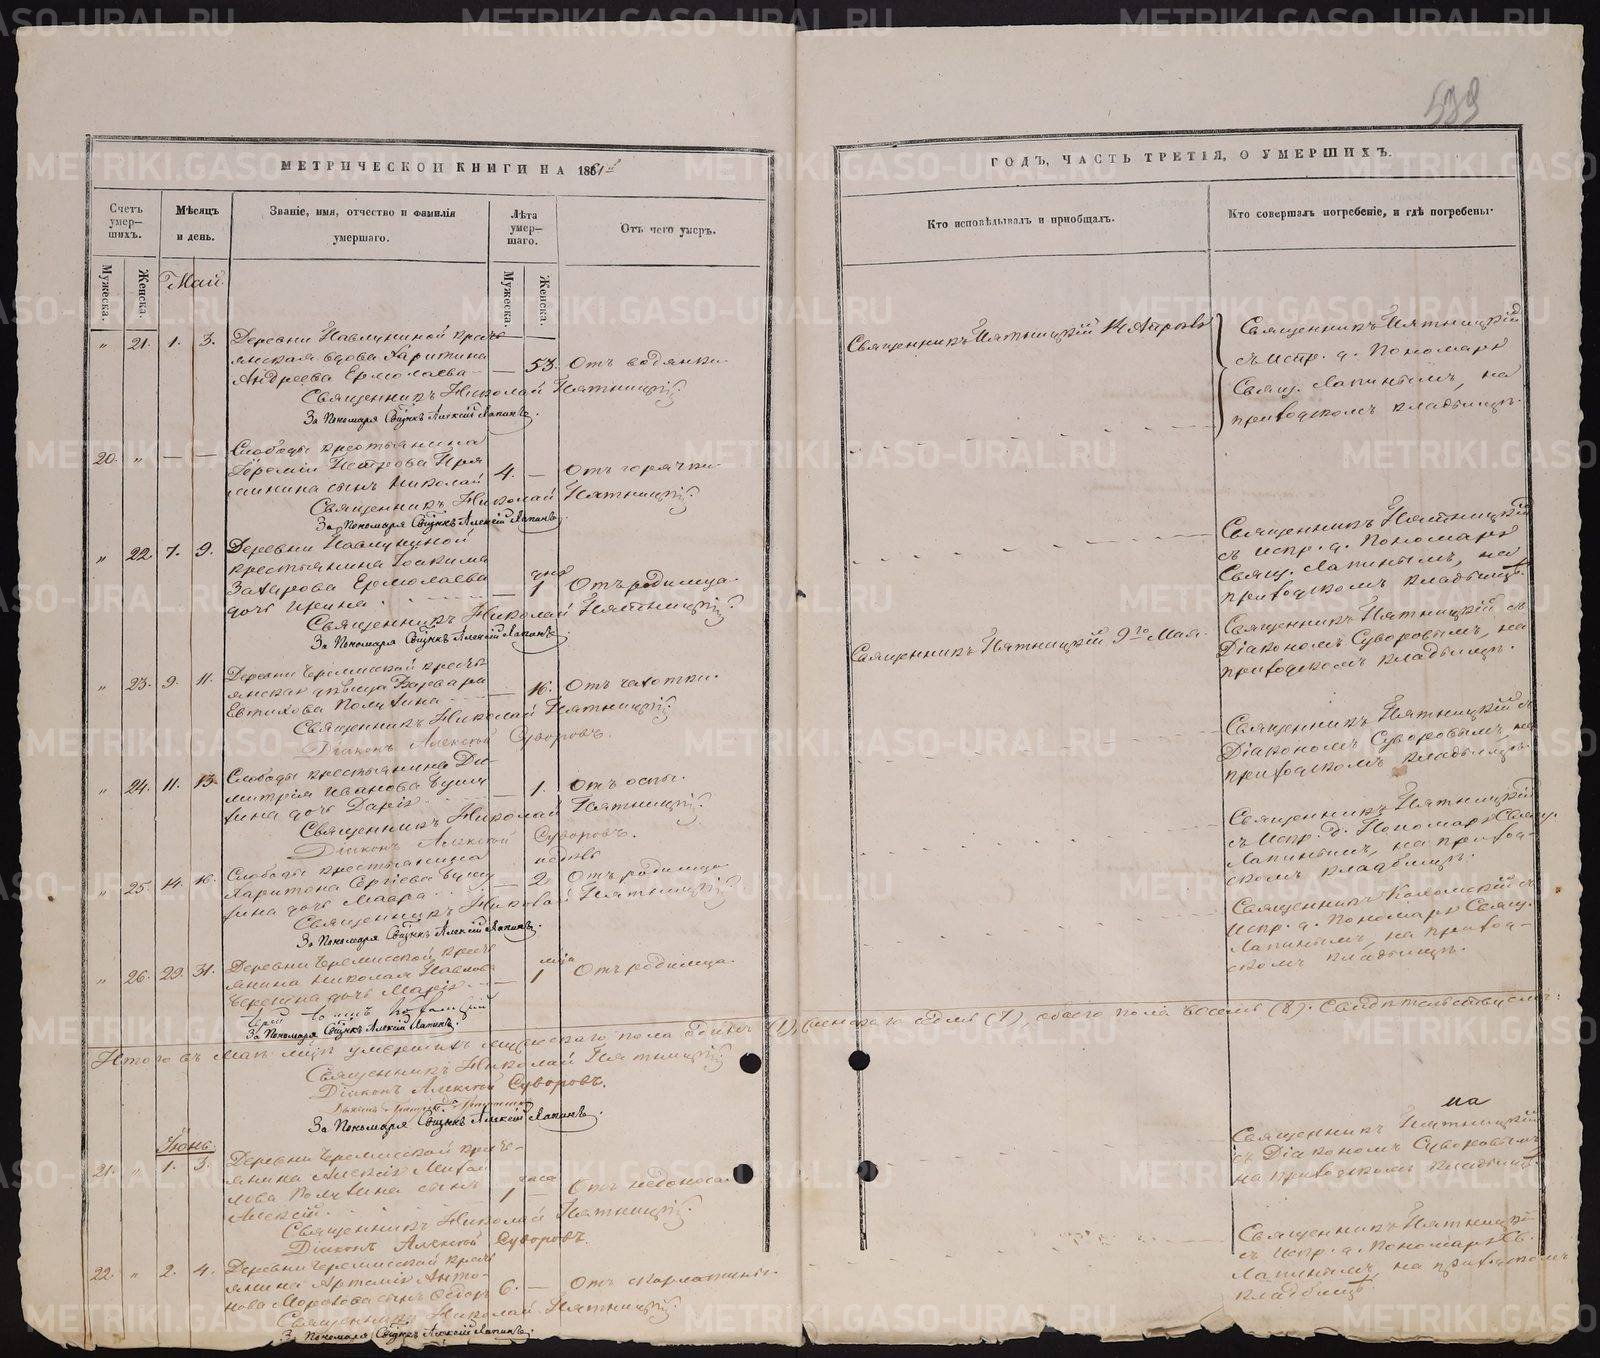 539
МЕТРИЧЕСКОЙ КНИГИ НА 1861й
ГОДЪ, ЧАСТЬ ТРЕТІЯ, О УМЕРШИХЪ.
Счетъ умер—шихъ.
Мѣсяцъ и день.
Званіе, имя, отчество и фамилія умершаго.
Лѣта умер—шаго.
Отъ чего умеръ.
Кто исповѣдывалъ и пріобщалъ.
Кто совершалъ погребеніе, и гдѣ погребены.
Мужеска.
Женска.
Мужеска.
Женска.
Май
„ 21. 1. 3. Деревни Павлуниной кресть
янская вдова Харитина
Андреева Ермолаева — — 53. Отъ водянки.
Священникъ Николай Пятницкій.
За Пономаря Свщнкъ Алексій Лапинъ.
Священникъ Пятницкій
Священникъ Пятницкій
съ испр. д. Пономаря
Свящ. Лапинымъ, на
приходскомъ кладбищѣ.
20. „ — — Слободы крестьянина
Іереміи Петрова
сынъ Николай 4. — Отъ горячки.
Священникъ Николай Пятницкій.
За Пономаря Свщнкъ Алексій Лапинъ.
„ 22. 7. 9. Деревни Павлуниной
крестьянина Іоакима
Захарова Ермолаева
дочь Ирина — 1 дня Отъ родимца.
Священникъ Николай Пятницкій.
За Пономаря Свщнкъ Алексій Лапинъ.
Священникъ Пятницкій
съ испр. д. Пономаря
Свящ. Лапинымъ, на
приходскомъ кладбищѣ.
„ 23. 9. 11. Деревни Черемисской кресть
янская дѣвица Варвара
Евтихова Полухина — 16. Отъ чахотки.
Священникъ Николай Пятницкій.
Діаконъ Алексѣй Суворовъ.
Священникъ Пятницкій 9го Мая.
Священникъ Пятницкій съ
Діакономъ Суворовымъ, на
приходскомъ кладбищѣ.
„ 24. 11. 13. Слободы крестьянина Ди
митрія Иванова
дочь Дарія — 1. Отъ оспы.
Священникъ Николай Пятницкій.
Діаконъ Алексѣй Суворовъ.
Священникъ Пятницкій съ
Діакономъ Суворовымъ, на
приходскомъ кладбищѣ.
„ 25. 14. 16. Слободы крестьянина
Харитона Сергіева
дочь Мавра — 2 недѣль Отъ родимца.
Священникъ Николай Пятницкій.
За Пономаря Свщнкъ Алексій Лапинъ.
Священникъ Пятницкій
съ Испр. д. Пономаря Свящ.
Лапинымъ, на приход—
скомъ кладбищѣ.
„ 26. 29. 31. Деревни Черемисской кресть
янина Николая Павлова
дочь Марія — 1 мца Отъ родимца.
За Пономаря Свщнкъ Алексій Лапинъ.
Священникъ
Испр. д. Пономаря Свящ.
Лапинымъ, на приход—
скомъ кладбищѣ.
Итого въ Маѣ мцѣ умершихъ мужескаго пола одинъ (1), женскаго седмь (7), обоего пола восемь (8). Свидѣтельствуемъ:
Священникъ Николай Пятницкій
Діаконъ Алексѣй Суворовъ.
За Пономаря Свщнкъ Алексій Лапинъ.
Іюнь
21. „ 1. 3. Деревни Черемисской кресть—
янина Алексія Михай
лова Полухина сынъ
Алексій. 1 часа — Отъ недоноса.
Священникъ Николай Пятницкій.
Діаконъ Алексѣй Суворовъ.
Священникъ Пятницкій
съ Діакономъ Суворовымъ
на приходскомъ кладбищѣ.
22. „ 2. 4. Деревни Черемисской кресть
янина Артемія Анто—
нова сынъ Ѳедоръ 6. — Отъ скарлатины.
Священникъ Николай Пятницкій.
За Пономаря Свщнкъ Алексій Лапинъ.
Священникъ Пятницкій
съ испр. д. Пономаря Св.
Лапинымъ, на приходскомъ
кладбищѣ.
METRIKI.GASO-URAL.RU